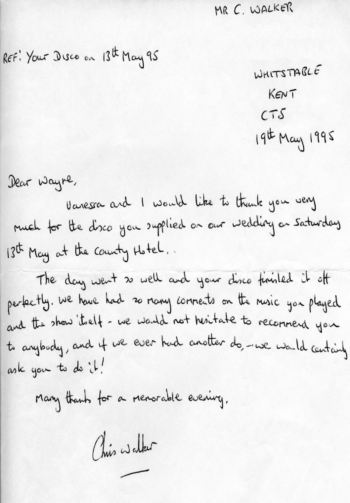 MR C. WALKER
REF: Your Disco on 13th May 95
WHITSTABLE
KENT
CT5
19th May 1995
Dear Wayne,
Vanessa and I would like to thank you very
much for the disco you supplied on our wedding on Saturday
13th May at the County Hotel..
The day went so well and your disco finished it off
perfectly. We have had so many comments on the music you played
and the show itself - we would not hesitate to recommend you
to anybody, and if we ever had another do, - we would certainly
ask you to do it!
Many thanks for a memorable evening.
Chris Walker